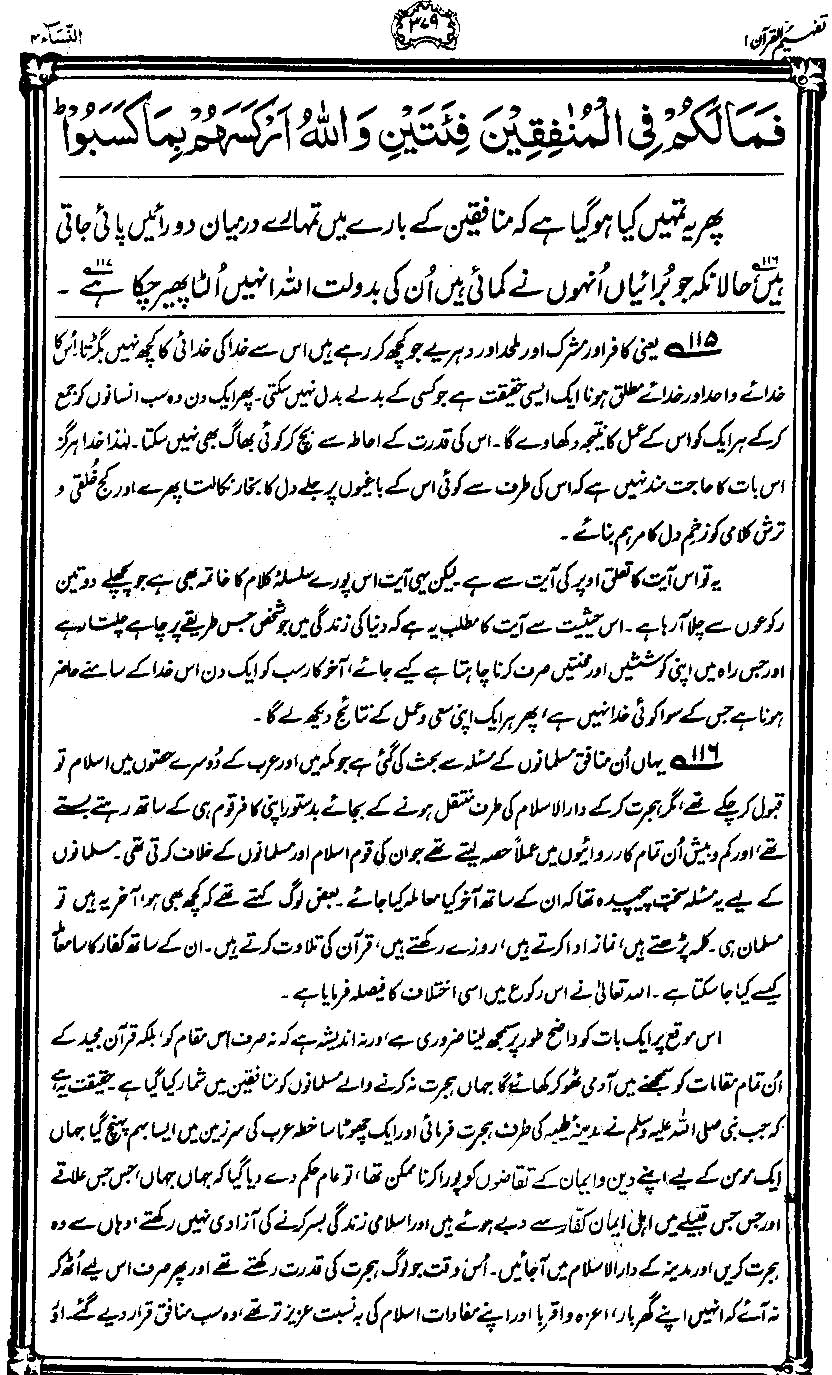 تفہیم القرآن ۱
۳۷۹
النساء ۴
فَمَا لَكُمْ فِي الْمُنٰفِقِيْنَ فِئَتَيْنِ وَاللّٰهُ اَرْكَسَهُمْ بِمَا كَسَبُوْا ؕ
پھر یہ تمہیں کیا ہو گیا ہے کہ منافقین کے بارے میں تمہارے درمیان دو رائیں پائی جاتی
ہیں۱۱۶ حالانکہ جو بُرائیاں اُنہوں نے کمائی ہیں اُن کی بدولت اللہ انہیں اُلٹا پھیر چکا ہے۱۱۷۔
۱۱۵ یعنی کافر اور مشرک اور ملحد اور دہریے جو کچھ کر رہے ہیں اس سے خدا کی خدائی کا کچھ نہیں بگڑتا، اُس کا
خدائے واحد اور خدائے مطلق ہونا ایک ایسی حقیقت ہے جو کسی کے بدلے بدل نہیں سکتی۔ پھر ایک دن وہ سب انسانوں کو جمع
کر کے ہر ایک کو اس کے عمل کا نتیجہ دکھا دے گا۔ اس کی قدرت کے احاطہ سے بچ کر کوئی بھاگ بھی نہیں سکتا۔ لہٰذا خدا ہرگز
اس بات کا حاجت مند نہیں ہے کہ اس کی طرف سے کوئی اس کے باغیوں پر جلے دل کا بخار نکالتا پھرے اور کج خُلقی و
ترش کلامی کو زخمِ دل کا مرہم بنائے۔
یہ تو اس آیت کا تعلق اوپر کی آیت سے ہے۔ لیکن یہی آیت اس پورے سلسلۂ کلام کا خاتمہ بھی ہے جو پچھلے دو تین
رکوعوں سے چلا آ رہا ہے۔ اس حیثیت سے آیت کا مطلب یہ ہے کہ دنیا کی زندگی میں جو شخص جس طریقے پر چاہے چلتا رہے
اور جس راہ میں اپنی کوششیں اور محنتیں صرف کرنا چاہتا ہے کیے جائے، آخر کار سب کو ایک دن اس خدا کے سامنے حاضر
ہونا ہے جس کے سوا کوئی خدا نہیں ہے، پھر ہر ایک اپنی سعی و عمل کے نتائج دیکھ لے گا۔
۱۱۶ یہاں اُن منافق مسلمانوں کے مسئلہ سے بحث کی گئی ہے جو مکہ میں اور عرب کے دُوسرے حصّوں میں اسلام تو
قبول کر چکے تھے، مگر ہجرت کر کے دارالاسلام کی طرف منتقل ہونے کے بجائے بدستور اپنی کافر قوم ہی کے ساتھ رہتے بستے
تھے، اور کم و بیش اُن تمام کارروائیوں میں عملاً حصہ لیتے تھے جو ان کی قوم اسلام اور مسلمانوں کے خلاف کرتی تھی۔ مسلمانوں
کے لیے یہ مسئلہ سخت پیچیدہ تھا کہ ان کے ساتھ آخر کیا معاملہ کیا جائے۔ بعض لوگ کہتے تھے کہ کچھ بھی ہو، آخر یہ ہیں تو
مسلمان ہی۔ کلمہ پڑھتے ہیں، نماز ادا کرتے ہیں، روزے رکھتے ہیں، قرآن کی تلاوت کرتے ہیں۔ ان کے ساتھ کفار کا سا معاملہ
کیسے کیا جا سکتا ہے۔ اللہ تعالیٰ نے اس رکوع میں اسی اختلاف کا فیصلہ فرمایا ہے۔
اس موقع پر ایک بات کو واضح طور پر سمجھ لینا ضروری ہے، ورنہ اندیشہ ہے کہ نہ صرف اِس مقام کو، بلکہ قرآن مجید کے
اُن تمام مقامات کو سمجھنے میں آدمی ٹھوکر کھائے گا جہاں ہجرت نہ کرنے والے مسلمانوں کو منافقین میں شمار کیا گیا ہے۔ حقیقت یہ ہے
کہ جب نبی صلی اللہ علیہ وسلم نے مدینۂ طیبہ کی طرف ہجرت فرمائی اور ایک چھوٹا سا خطہ عرب کی سرزمین میں ایسا بہم پہنچ گیا جہاں
ایک مومن کے لیے اپنے دین و ایمان کے تقاضوں کو پورا کرنا ممکن تھا، تو عام حکم دے دیا گیا کہ جہاں جہاں، جس جس علاقے
اور جس جس قبیلے میں اہلِ ایمان کفّار سے دبے ہوئے ہیں اور اسلامی زندگی بسر کرنے کی آزادی نہیں رکھتے، وہاں سے وہ
ہجرت کریں اور مدینہ کے دارالاسلام میں آ جائیں۔ اُس وقت جو لوگ ہجرت کی قدرت رکھتے تھے اور پھر صرف اس لیے اُٹھ کر
نہ آئے کہ انہیں اپنے گھر بار، اعزہ و اقربا اور اپنے مفادات اسلام کی بہ نسبت عزیز تر تھے، وہ سب منافق قرار دیے گئے۔ اور